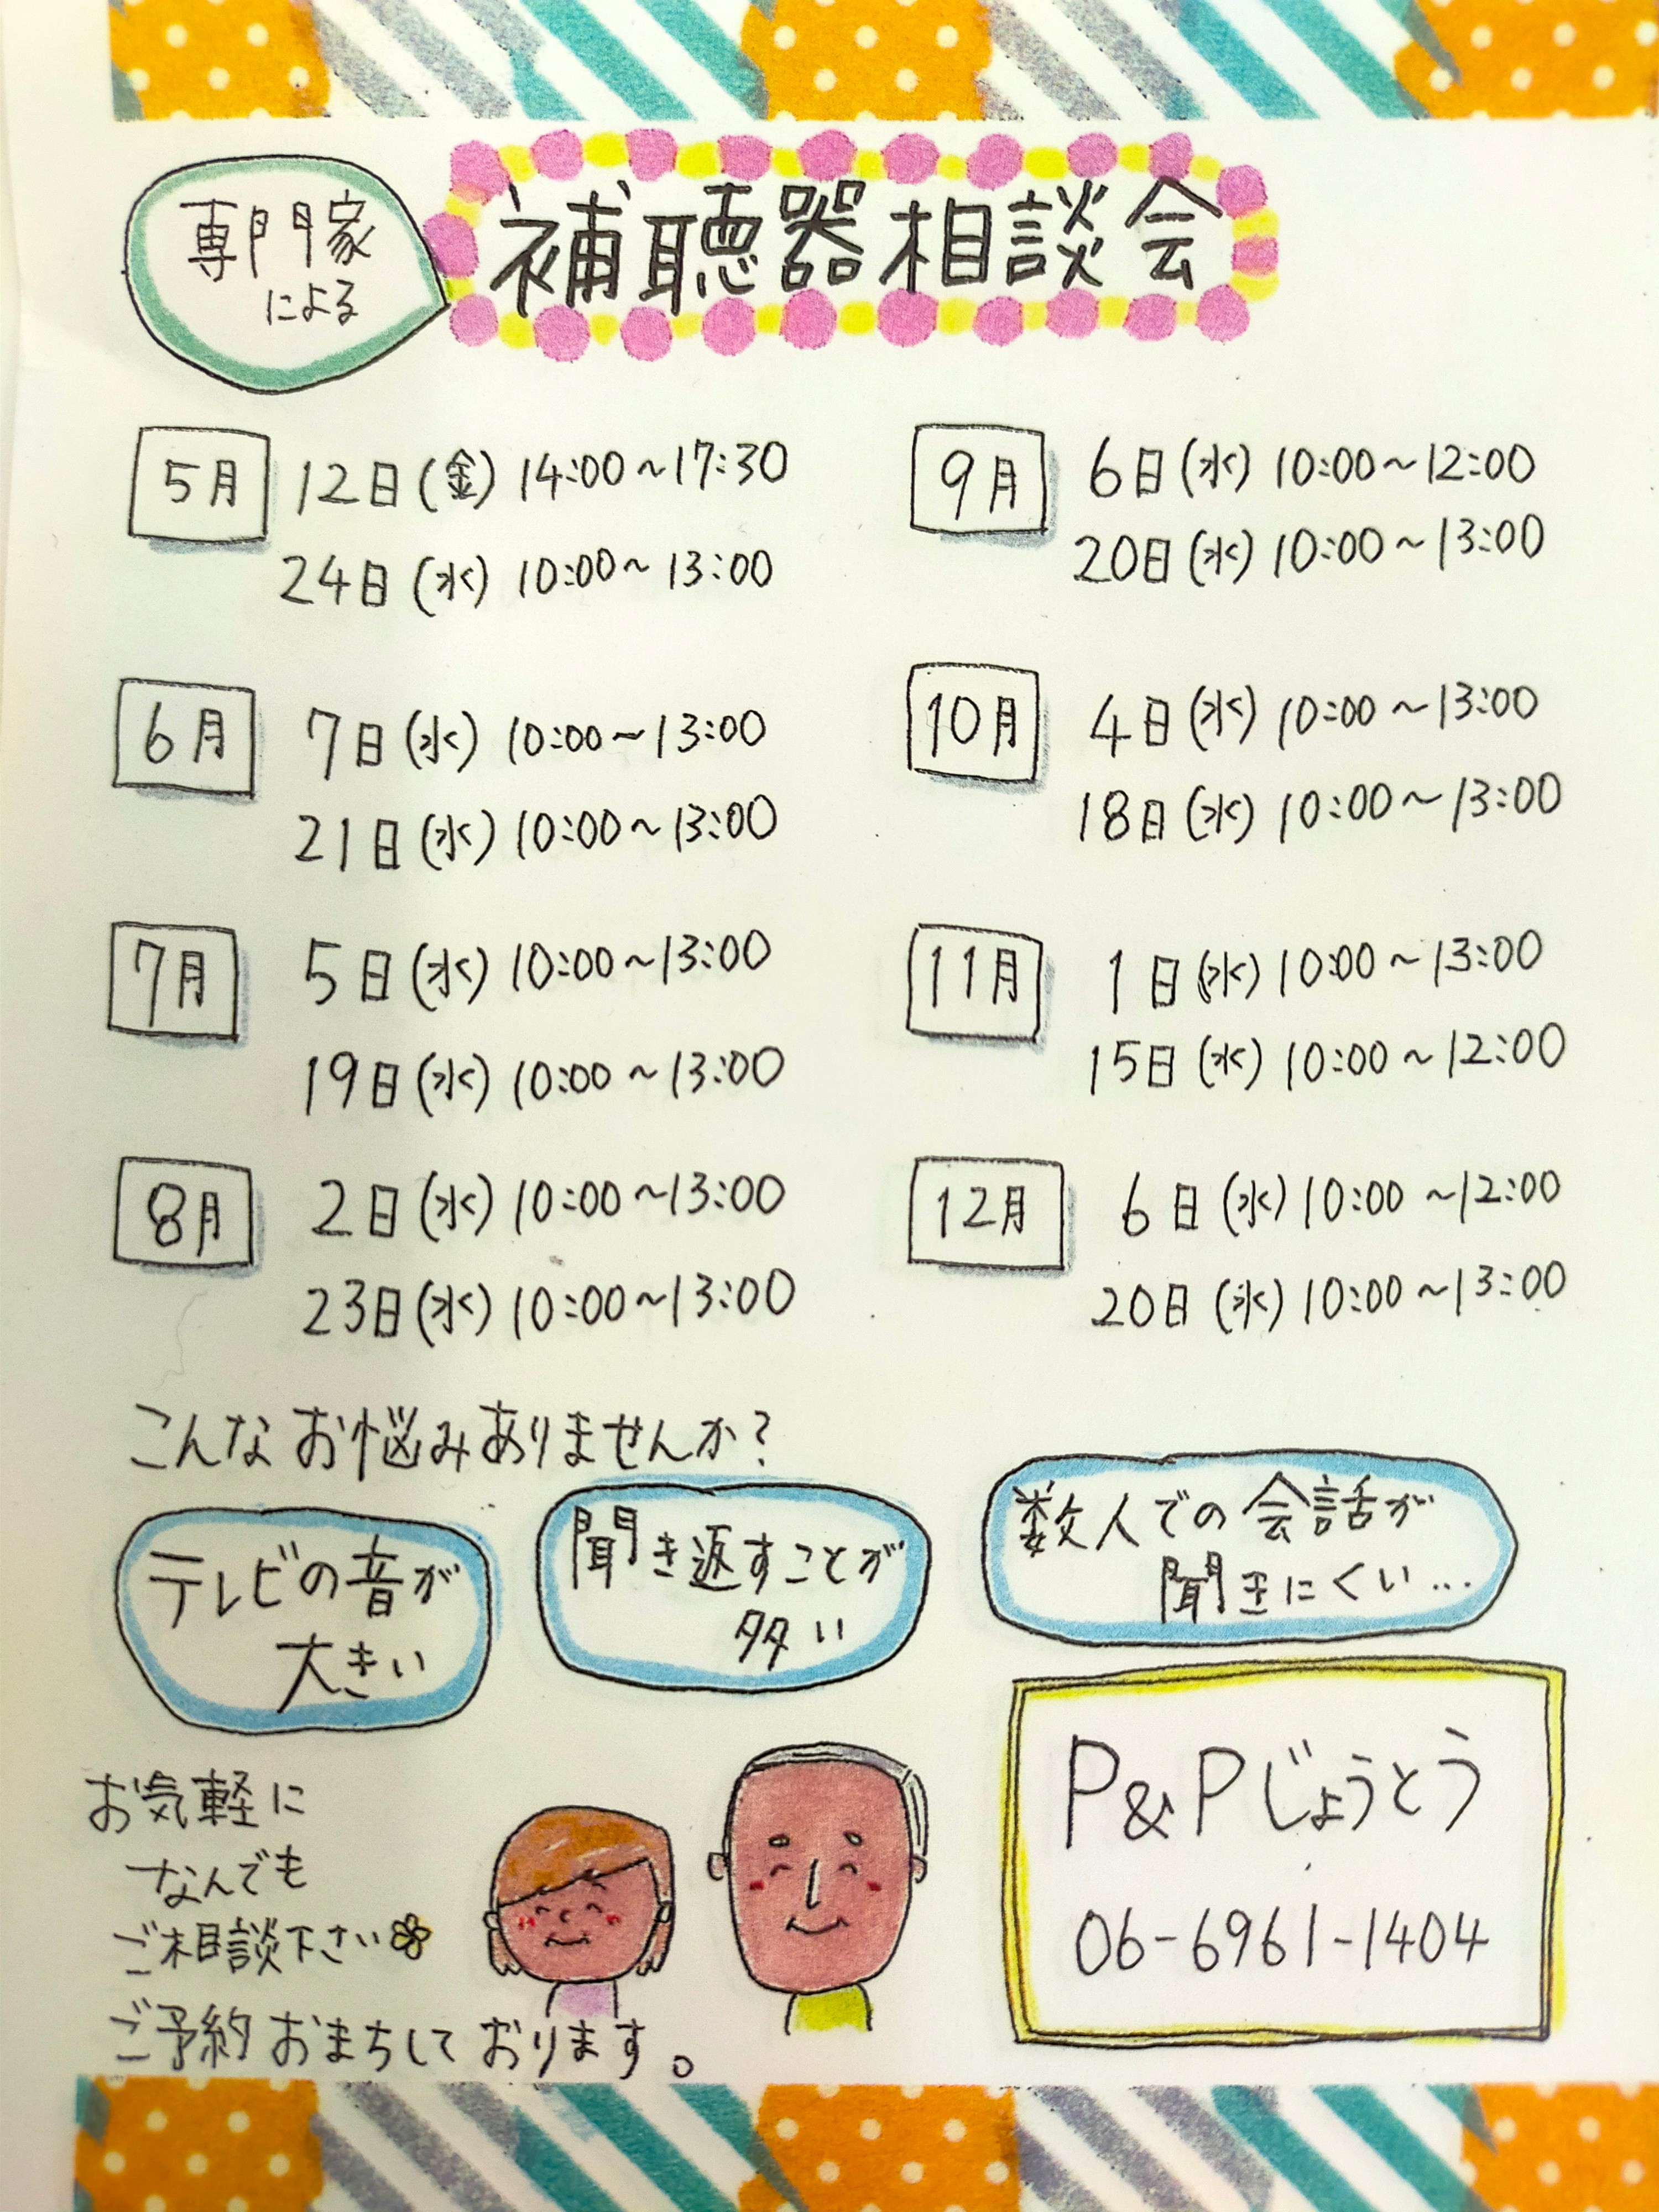 専門家
による
補聴器相談会
5月 12日(金) 14:00~17:30
24日(水) 10:00~13:00
6月 7日(水) 10:00~13:00
21日(水) 10:00~13:00
7月 5日(水) 10:00~13:00
19日(水) 10:00~13:00
8月 2日(水) 10:00~13:00
23日(水) 10:00~13:00
9月 6日(水) 10:00~12:00
20日(水) 10:00~13:00
10月 4日(水) 10:00~13:00
18日(水) 10:00~13:00
11月 1日(水) 10:00~13:00
15日(水) 10:00~12:00
12月 6日(水) 10:00~12:00
20日(水) 10:00~13:00
こんなお悩みありませんか?
テレビの音が
大きい
聞き返すことが
多い
数人での会話が
聞きにくい...
お気軽に
なんでも
ご相談下さい
ご予約おまちしております。
P&Pじょうとう
06-6961-1404